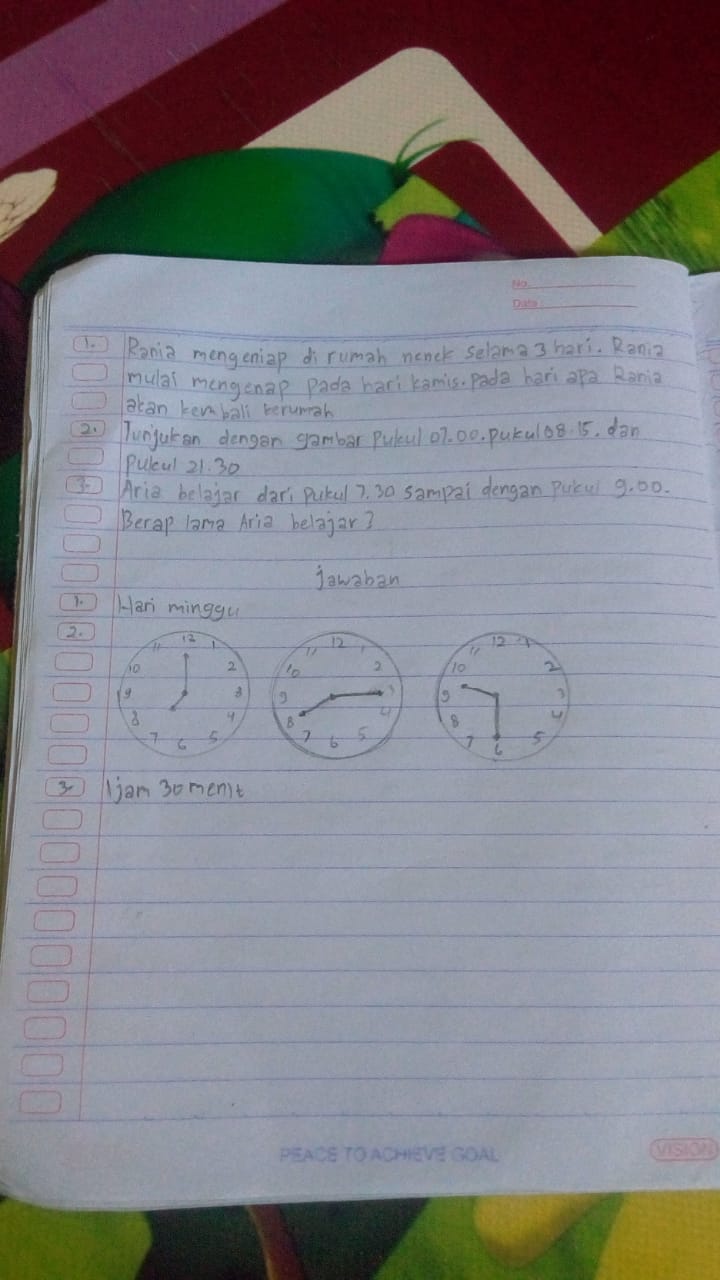 No.
Date:
1. Rania mengeniap di rumah nenek selama 3 hari. Rania
mulai mengenap pada hari kamis. pada hari apa Rania
akan kembali kerumah
2. Tunjukan dengan gambar Pukul 07.00. pukul 08.15. dan
Pukul 21.30
3. Aria belajar dari pukul 7.30 sampai dengan pukul 9.00.
Berap lama Aria belajar?
jawaban
1. Hari minggu
2.
12 1 2 3 4 5 6 7 8 9 10 11
12 1 2 3 4 5 6 7 8 9 10 11
12 1 2 3 4 5 6 7 8 9 10 11
3. 1 jam 30 menit
PEACE TO ACHIEVE GOAL
VISION